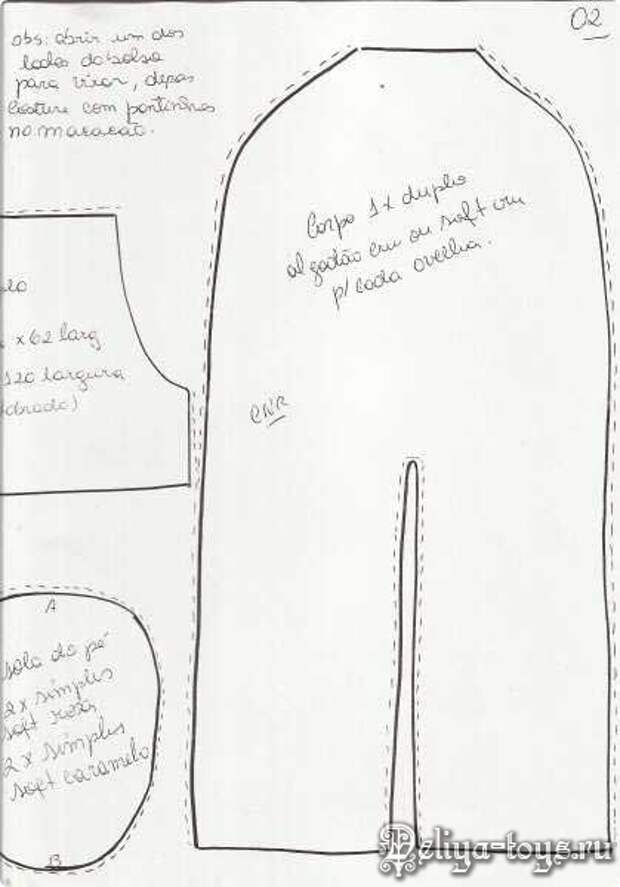 02
obs: abrir um dos
lados do bolso
para virar, depois
costure com pontinhos
no macacão.
Corpo 1x duplo
algodão cru ou soft cru
p/ cada ovelha.
x 62 larg
120 largura
A
sola do pé
2x simples
soft rosa
2x simples
soft caramelo
B
Deliya-toys.ru